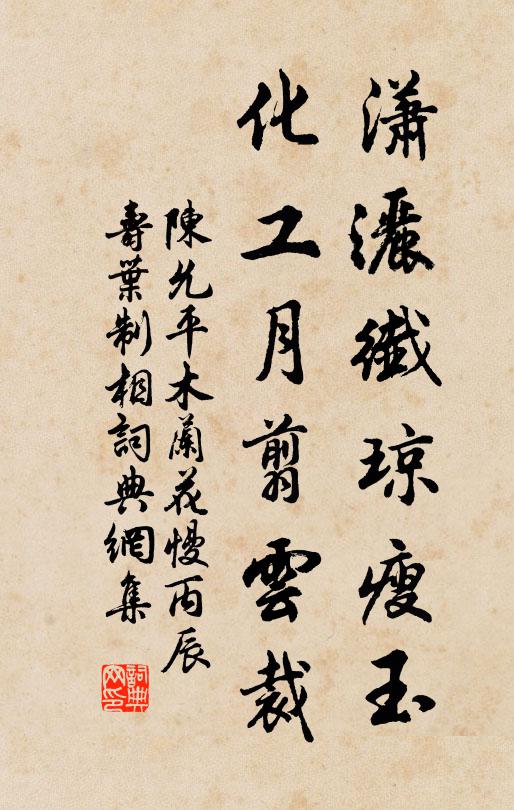 瀟灑纖瓊瘦玉
化工月翦雲裁
陳允平木蘭花慢丙辰
壽葉制相詞典網集
詞典
網印